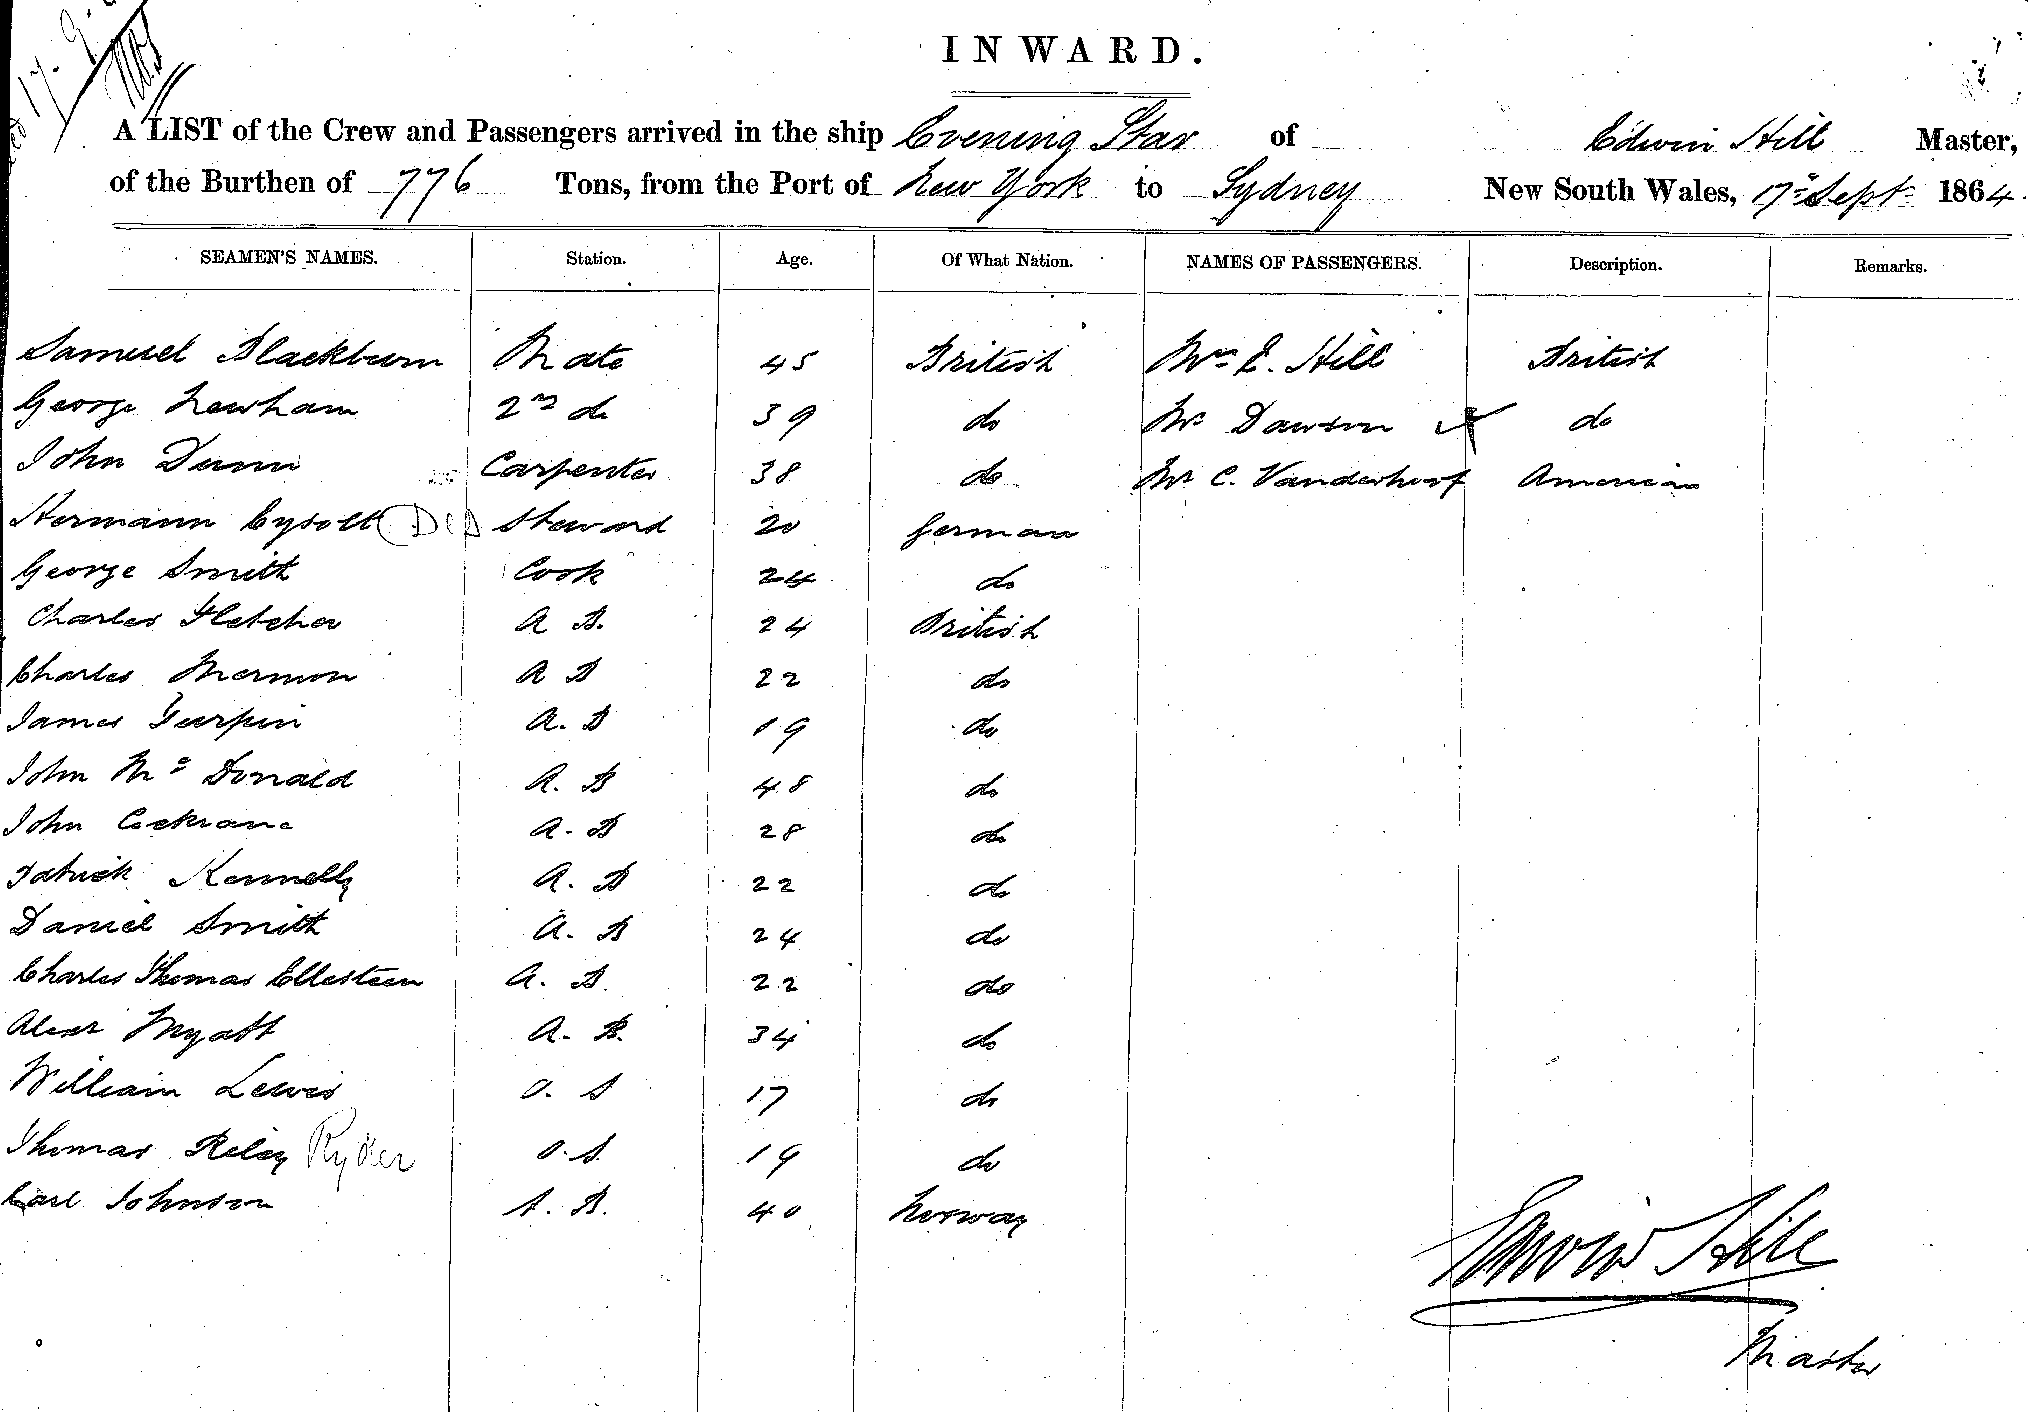 INWARD.
A LIST of the Crew and Passengers arrived in the ship Evening Star of Edwin Hill Master,
of the Burthen of 776 Tons, from the Port of New York to Sydney New South Wales, 17th Sept 1864
SEAMEN'S NAMES. Station. Age. Of What Nation. NAMES OF PASSENGERS. Description. Remarks.
Samuel Blackburn Mate 45 British Mrs E. Hill British
George Newham 2nd do 39 do Mr Dawson do
John Dunn Carpenter 38 do Mr C. Vanderhoof American
Hermann Steward 20 German
George Smith Cook 24 do
Charles Fletcher A B. 24 British
Charles Mermon A B 22 do
James Turpin A. B 19 do
John Mc Donald A. B 48 do
John Cockrane A. B 28 do
Patrick Kennelly A. B 22 do
Daniel Smith A. B 24 do
Charles Thomas Ellesteen A. B. 22 do
Alexr Myatt A. B. 34 do
William Lewis O. S 17 do
Thomas Reley Ryder O. S. 19 do
Carl Johnson A. B. 40 Norway
Edwin Hill
Master